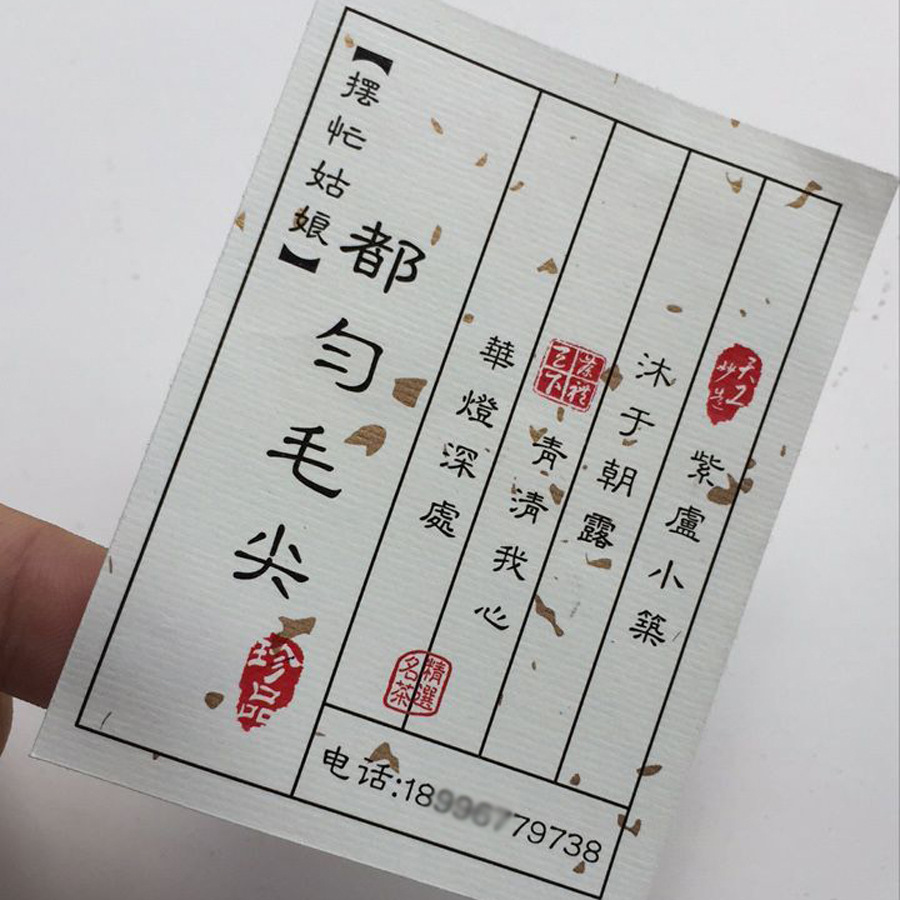 天工妙造
紫盧小築
沐于朝露
茶禮天下
青清我心
華燈深處
精選名茶
【摆忙姑娘】
都匀毛尖
珍品
电话:18 79738